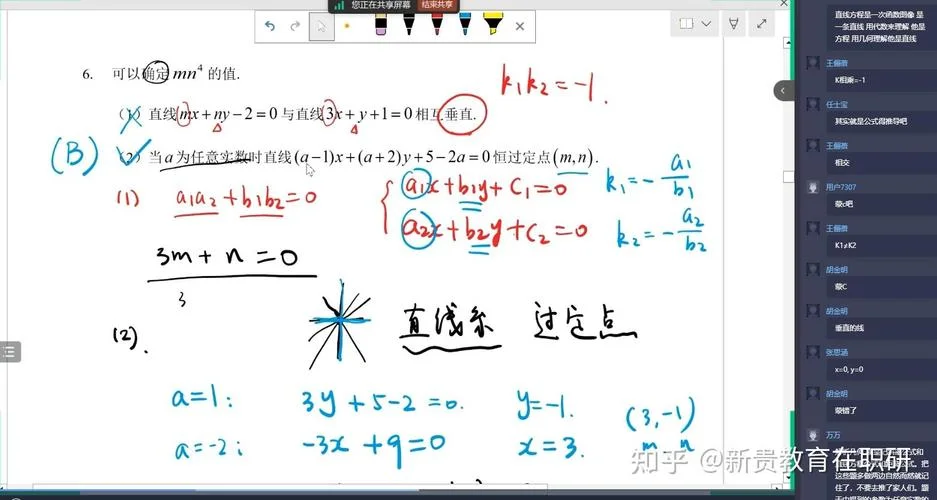 您正在共享屏幕 结束共享
6. 可以确定 mn⁴ 的值.
k₁k₂=-1.
(1) 直线 mx+ny-2=0 与直线 3x+y+1=0 相互垂直.
(B) (2) 当 a 为任意实数时直线 (a-1)x+(a+2)y+5-2a=0 恒过定点 (m,n).
(1) a₁a₂+b₁b₂=0
a₁x+b₁y+C₁=0
k₁=-a₁/b₁
a₂x+b₂y+C₂=0
k₂=-a₂/b₂
3m+n=0
3
(2).
直线系 过定点
a=1: 3y+5-2=0. y=-1. (3,-1)
a=-2: -3x+9=0 x=3. m n
直线方程是一次函数图像 是
一条直线 用代数来理解 他是
方程 用几何理解他是直线
王俪薇
K相乘=-1
任士宝
其实就是公式得推导吧
王俪薇
相交
用户7307
蒙c吧
王俪薇
K1≠K2
胡金明
蒙C
胡金明
垂直的线
张思涵
x=0, y=0
胡金明
蒙错了
万万
住了，不要去推了家人们。
知乎 @新贵教育在职研